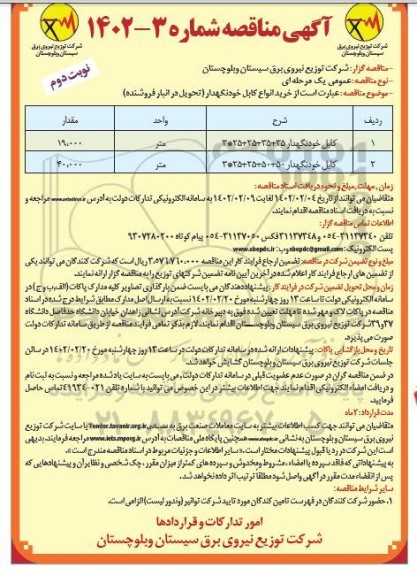 آگهی مناقصه شماره ۳-۱۴۰۲
شرکت توزیع نیروی برق
سیستان وبلوچستان
شرکت توزیع نیروی برق
سیستان وبلوچستان
نوبت دوم
- مناقصه گزار: شرکت توزیع نیروی برق سیستان وبلوچستان
- نوع مناقصه: عمومی یک مرحله ای
- موضوع مناقصه: عبارت است از خرید انواع کابل خودنگهدار (تحویل در انبار فروشنده)
ردیف شرح واحد مقدار
۱ کابل خودنگهدار ۳۵+۳۵+۲۵+۲۵*۳ متر ۱۹،۰۰۰
۲ کابل خودنگهدار ۵۰+۵۰+۲۵+۲۵*۳ متر ۴۰،۰۰۰
زمان، مهلت، مبلغ و نحوه دریافت اسناد مناقصه:
متقاضیان می توانند از تاریخ ۱۴۰۲/۰۲/۰۴ لغایت ۱۴۰۲/۰۲/۰۹ به سامانه الکترونیکی تدارکات دولت به آدرس مراجعه و
نسبت به دریافت اسناد مناقصه اقدام نمایند.
اطلاعات تماس مناقصه گزار:
تلفن ۳۱۱۳۷۳۴۰-۰۵۴ و ۳۱۱۳۷۳۴۸ فکس ۳۱۱۳۷۰۵۰-۰۵۴ پیام کوتاه ۹۳۰۷۲۸۰۲۰۰
پست الکترونیک: sbepdc@gmail.com وب: www.sbepdc.ir
مبلغ و نوع تضمین شرکت در مناقصه: تضمین ارجاع فرایند کار این مناقصه ریال است که شرکت کنندگان می توانند یکی
از تضمین های ارجاع فرایند کار اعلام شده در آخرین آیین نامه تضمین شرکتهای توزیع را به مناقصه گزار ارائه نمایند.
زمان و محل تحویل تضمین شرکت در فرایند کار: پیشنهاد دهندگان می بایست ضمن بارگذاری تصاویر کلیه مدارک پاکات (الف، ب و ج) در
سامانه الکترونیکی دولت تا ساعت ۱۳ روز چهارشنبه مورخ ۱۴۰۲/۰۲/۲۰ نسبت به ارسال اصل مدارک مطابق شرایط درج شده در اسناد
مناقصه در پاکات لاک و مهر شده تا مهلت تعیین شده فوق به دبیرخانه شرکت آدرس نشانی زاهدان خیابان دانشگاه حدفاصل دانشگاه
۳۷ و ۳۹ شرکت توزیع نیروی برق سیستان وبلوچستان اقدام نمایند. لازم بذکر تمامی فرایند مناقصه از طریق سامانه تدارکات دولت
صورت می پذیرد.
تاریخ و محل بازگشایی پاکات: پیشنهادات ارائه شده در سامانه تدارکات دولت در ساعت ۱۳ روز چهارشنبه مورخ ۱۴۰۲/۰۲/۲۰ در سالن
جلسات شرکت توزیع نیروی برق سیستان وبلوچستان گشایش خواهد شد.
در ضمن مناقصه گران در صورت عدم عضویت قبلی در سامانه تدارکات دولت، می بایست به سایت یاد شده مراجعه و نسبت به ثبت نام
و دریافت امضاء الکترونیکی اقدام نمایند جهت اطلاعات بیشتر در این خصوص می توانید با شماره تلفن ۰۲۱-۴۱۹۳۴ تماس حاصل
فرمایید.
مدت قرارداد: ۲ ماه
متقاضیان می توانند جهت کسب اطلاعات بیشتر به سایت معاملات صنعت برق به نشانی Tender.tavanir.org.ir یا سایت شرکت توزیع
نیروی برق سیستان وبلوچستان به نشانی همچنین پایگاه ملی مناقصات به آدرس www.iets.mporg.ir مراجعه فرمایند بدیهی
است این شرکت در رد یا قبول پیشنهادات مختار است. سایر اطلاعات و جزئیات مربوط در اسناد مناقصه مندرج است.
به پیشنهاداتی که فاقد سپرده یا امضاء، مشروط و مخدوش و سپرده های کمتر از میزان مقرر، چک شخصی و نظایر آن و پیشنهادهایی که
پس از انقضاء مدت مقرر در آگهی واصل شود مطلقاً ترتیب اثر داده نخواهد شد.
سایر شرایط مناقصه:
۱. حضور شرکت کنندگان در فهرست تامین کندگان مورد تایید شرکت توانیر (وندور لیست) الزامی است.
امور تدارکات و قراردادها
شرکت توزیع نیروی برق سیستان وبلوچستان